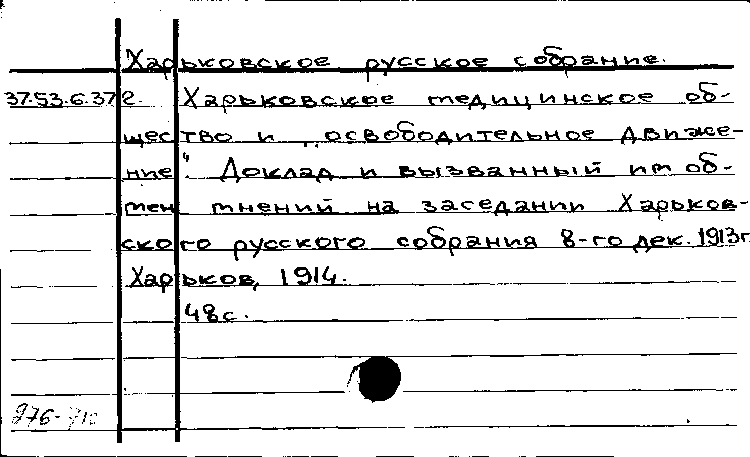 Харьковское русское собрание.
37.53.6.372. Харьковское медицинское об-
щество и „освободительное движе-
ние". Доклад и вызванный им об-
мен мнений на заседании Харьков-
ского русского собрания 8-го дек. 1913г
Харьков, 1914.
48с.
276-